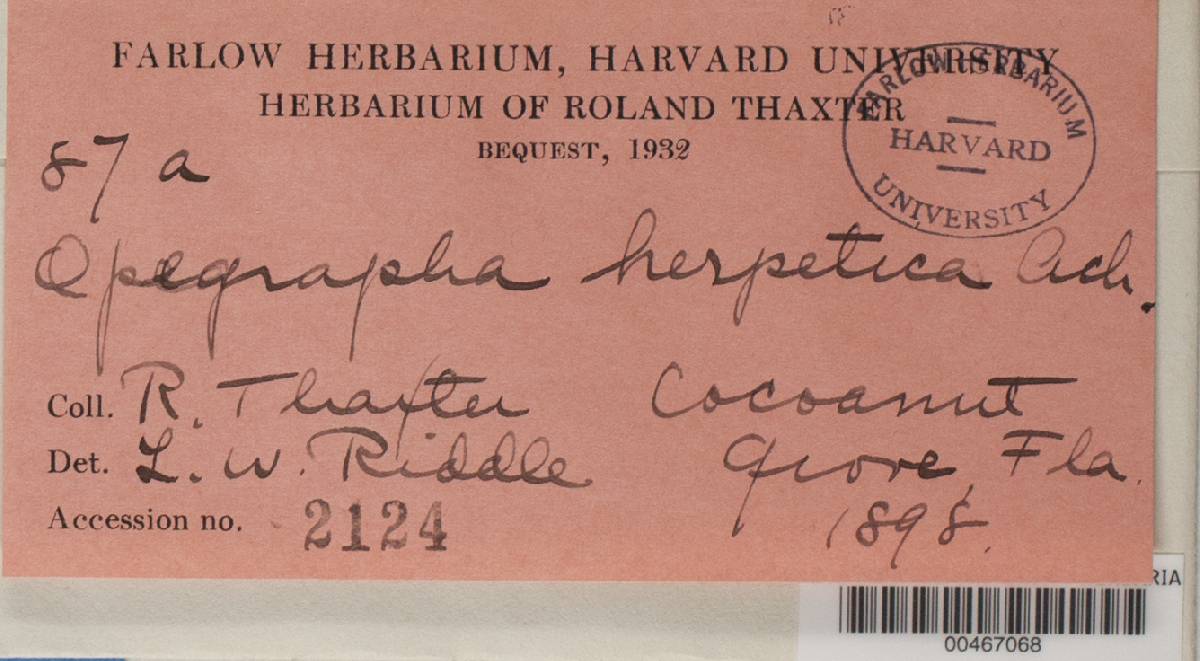 FARLOW HERBARIUM, HARVARD UNIVERSITY
HERBARIUM OF ROLAND THAXTER
BEQUEST, 1932
FARLOW HERBARIUM
HARVARD
UNIVERSITY
87 a
Opegrapha herpetica Ach.
Coll. R. Thaxter Cocoanut
Det. L. W. Riddle Grove, Fla.
Accession no. 2124 1898.
RIA
00467068